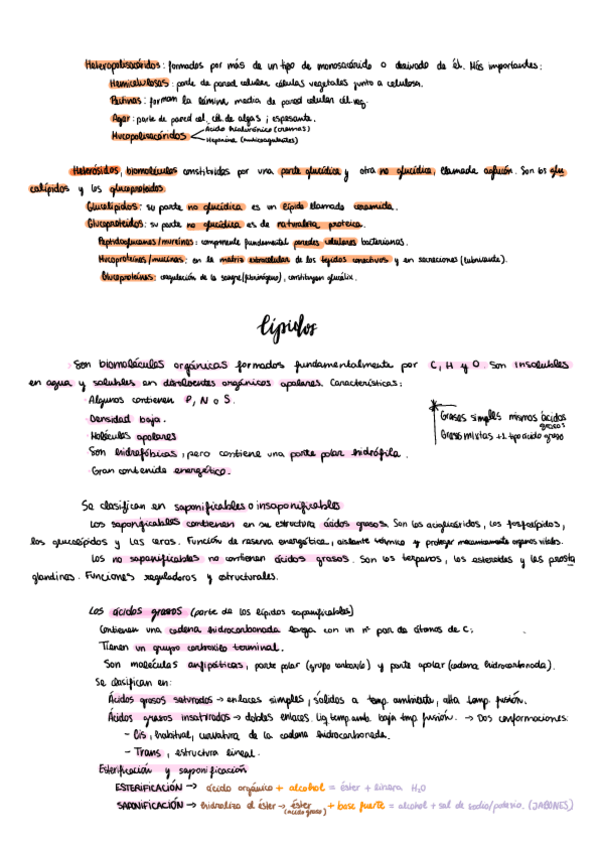 Heteropolisacáridos: formados por más de un tipo de monosacárido o derivado de él. Más importantes:
Hemicelulosas: parte de pared celular células vegetales junto a celulosa.
Pectinas: forman la lámina media de pared celular cél veg.
Agar: parte de pared cel. cél. de algas; espesante.
Mucopolisacáridos
Ácido hialurónico (cremas)
Heparina (anticoagulantes)
Heterósidos, biomoléculas constituidas por una parte glucídica y otra no glucídica, llamada aglucón. Son los glu
colípidos y los glucoproteidos
Glucolípidos: su parte no glucídica es un lípido llamado ceramida.
Glucoproteidos: su parte no glucídica es de naturaleza proteica.
Peptidoglucanos/mureínas: componente fundamental paredes celulares bacterianas.
Mucoproteínas/mucinas: en la matriz extracelular de los tejidos conectivos y en secreciones (lubricante).
Glucoproteínas: coagulación de la sangre (fibrinógeno), constituyen glucálix.
lípidos
Son biomoléculas orgánicas formados fundamentalmente por C, H y O. Son insolubles
en agua y solubles en disolventes orgánicos apolares. Características:
· Algunos contienen P, N o S.
· Densidad baja.
· Moléculas apolares
Son hidrofóbicas, pero contiene una parte polar hidrófila.
· Gran contenido energético.
* Grasas simples mismos ácidos
grasos
Grasas mixtas +1 tipo ácido graso
Se clasifican en saponificables o insaponificables
Los saponificables contienen en su estructura ácidos grasos. Son los acilglicéridos, los fosfolípidos,
los glucolípidos y las ceras. Función de reserva energética, aislante térmico y proteger mecanicamente órganos vitales.
Los no saponificables no contienen ácidos grasos. Son los terpenos, los esteroides y las prosta
glandinas. Funciones reguladoras y estructurales.
Los ácidos grasos (parte de los lípidos saponificables)
Contienen una cadena hidrocarbonada larga con un nº par de átomos de C;
Tienen un grupo carboxilo terminal.
Son moléculas anfipáticas, parte polar (grupo carboxilo) y parte apolar (cadena hidrocarbonada).
Se clasifican en:
Ácidos grasos saturados → enlaces simples, sólidos a temp. ambiente, alta temp. fusión.
Ácidos grasos insaturados → dobles enlaces. Liq temp. amb. baja tmp fusión. → Dos conformaciones:
- Cis, habitual, curvatura de la cadena hidrocarbonada.
- Trans, estructura lineal.
Esterificación y saponificación
ESTERIFICACIÓN → ácido orgánico + alcohol = éster + libera H2O
SAPONIFICACIÓN → hidroliza el éster → éster (ácido graso) + base fuerte = alcohol + sal de sodio/potasio. (JABONES)